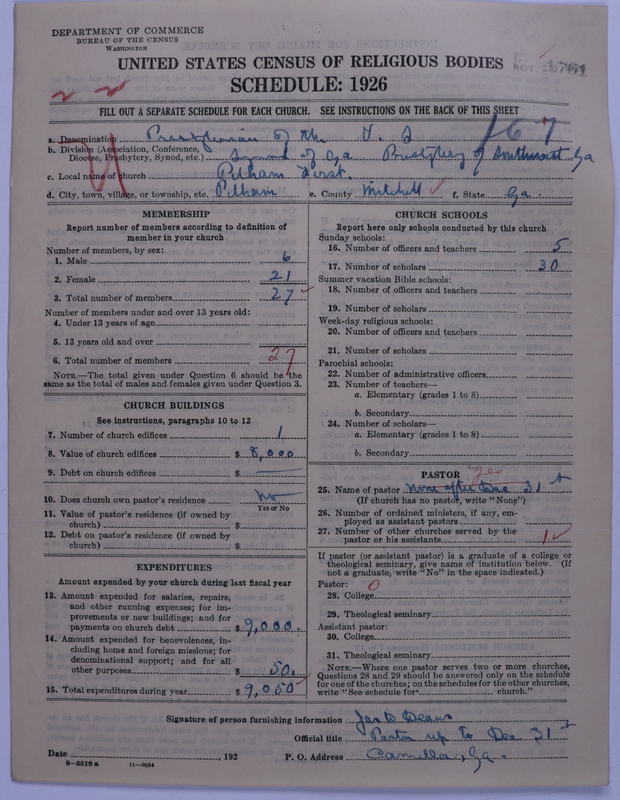 DEPARTMENT OF COMMERCE
BUREAU OF THE CENSUS
WASHINGTON
UNITED STATES CENSUS OF RELIGIOUS BODIES
SCHEDULE: 1926
FILL OUT A SEPARATE SCHEDULE FOR EACH CHURCH. SEE INSTRUCTIONS ON THE BACK OF THIS SHEET
a. Denomination Presbyterian of the U. S 167
b. Division (Association, Conference,
Diocese, Presbytery, Synod, etc.) Synod of Ga Presbytery of Southwest Ga
c. Local name of church Pelham First.
d. City, town, village, or township, etc. Pelham e. County Mitchell f. State Ga
MEMBERSHIP
Report number of members according to definition of
member in your church
Number of members, by sex:
1. Male 6
2. Female 21
3. Total number of members 27
Number of members under and over 13 years old:
4. Under 13 years of age
5. 13 years old and over
6. Total number of members 27
NOTE.—The total given under Question 6 should be the
same as the total of males and females given under Question 3.
CHURCH BUILDINGS
See instructions, paragraphs 10 to 12
7. Number of church edifices 1
8. Value of church edifices $ 8,000
9. Debt on church edifices $
10. Does church own pastor's residence No
Yes or No
11. Value of pastor's residence (if owned by
church) $
12. Debt on pastor's residence (if owned by
church) $
EXPENDITURES
Amount expended by your church during last fiscal year
13. Amount expended for salaries, repairs,
and other running expenses; for im-
provements or new buildings; and for
payments on church debt $ 9,000.
14. Amount expended for benevolences, in-
cluding home and foreign missions; for
denominational support; and for all
other purposes $ 50.
15. Total expenditures during year $ 9,050
CHURCH SCHOOLS
Report here only schools conducted by this church
Sunday schools:
16. Number of officers and teachers 5
17. Number of scholars 30
Summer vacation Bible schools:
18. Number of officers and teachers
19. Number of scholars
Week-day religious schools:
20. Number of officers and teachers
21. Number of scholars
Parochial schools:
22. Number of administrative officers
23. Number of teachers—
a. Elementary (grades 1 to 8)
b. Secondary
24. Number of scholars—
a. Elementary (grades 1 to 8)
b. Secondary
PASTOR yes
25. Name of pastor None after Dec 31st
(If church has no pastor, write "None")
26. Number of ordained ministers, if any, em-
ployed as assistant pastors
27. Number of other churches served by the
pastor or his assistants 1
If pastor (or assistant pastor) is a graduate of a college or
theological seminary, give name of institution below. (If
not a graduate, write "No" in the space indicated.)
Pastor: 0
28. College
29. Theological seminary
Assistant pastor:
30. College
31. Theological seminary
NOTE.—Where one pastor serves two or more churches,
Questions 28 and 29 should be answered only on the schedule
for one of the churches; on the schedules for the other churches,
write "See schedule for church."
Signature of person furnishing information Jas D Deans
Official title Pastor up to Dec 31st
Date , 192 P. O. Address Camilla, Ga.
8—5518a 11—9054